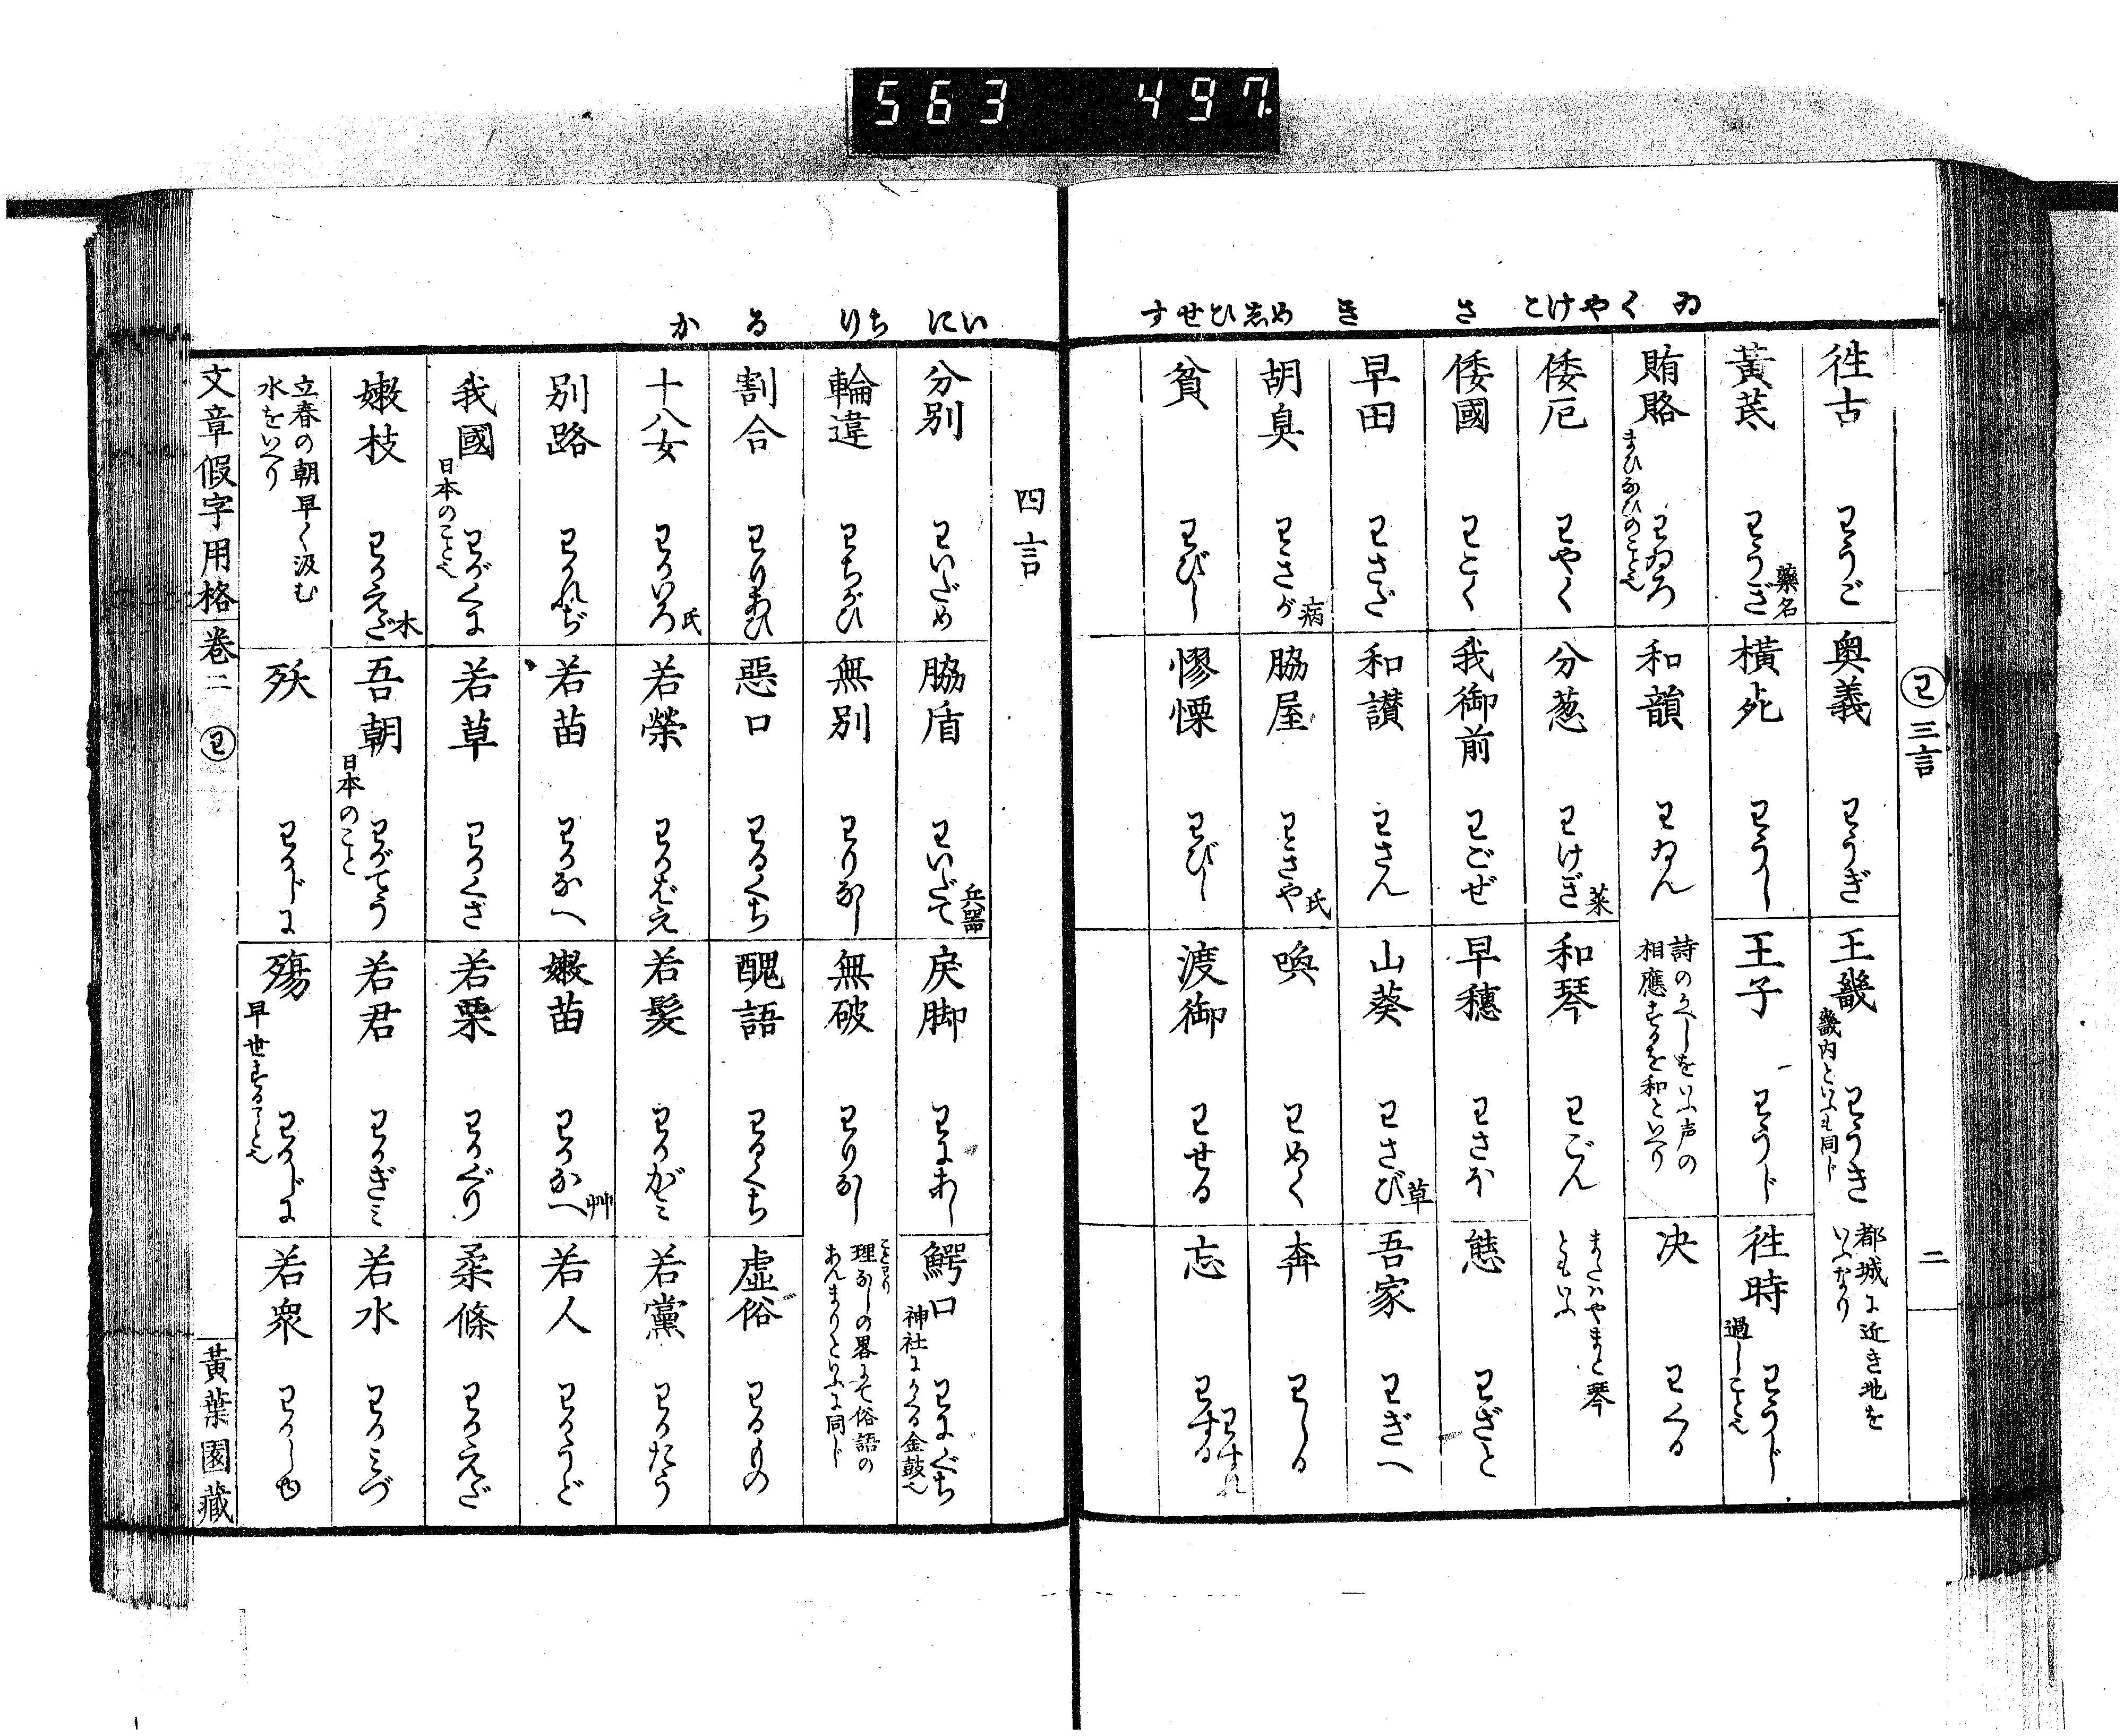 563 497
ゐくやけとさきめしひせす
わ 三言 二
往古 わうご
奥義 わうぎ
王畿 わうき 畿内といふも同じ
都城に近き地をいふなり
黄芪 わうぎ 藥名
横死 わうし
王子 わうじ
往時 わうじ 過しこと也
賄賂 わゐろ まひなひのこと也
和韻 わゐん
詩のかへしをいふ声の
相應するを和といへり
决 わくる
倭厄 わやく
分葱 わけぎ 菜
和琴 わごん
またハやまと琴
ともいふ
倭國 わこく
我御前 わごぜ
早穗 わさほ
態 わざと
早田 わさだ
和讃 わさん
山葵 わさび 草
吾家 わぎへ
胡臭 わきが 病
脇屋 わきや 氏
喚 わめく
奔 わしる
貧 わびし
憀慄 わびし
渡御 わせる
忘 わする わすれ
いにちりるか
四言
分別 わいだめ
脇盾 わいだて 兵器
戻脚 わにあし
鰐口 わにぐち 神社にかくる金鼓也
輪違 わちがひ
無別 わりなし
無破 わりなし
理なしの畧にて俗語の
あんまりといふに同じ
割合 わりあひ
惡口 わるくち
醜語 わるくち
虚俗 わるもの
十八女 わかいろ 氏
若榮 わかばえ
若髪 わかがミ
若黨 わかたう
別路 わかれぢ
若苗 わかなへ
嫩苗 わかなへ 艸
若人 わかうど
我國 わがくに 日本のこと也
若草 わかくさ
若栗 わかぐり
柔條 わかえだ
嫩枝 わかえだ 木
吾朝 わがてう 日本のこと
若君 わかぎミ
若水 わかミづ
立春の朝早く汲む
水をいへり
殀 わかじに
殤 わかじに 早世すること也
若衆 わかしゆ
文章假字用格 卷二 わ 黃葉園藏